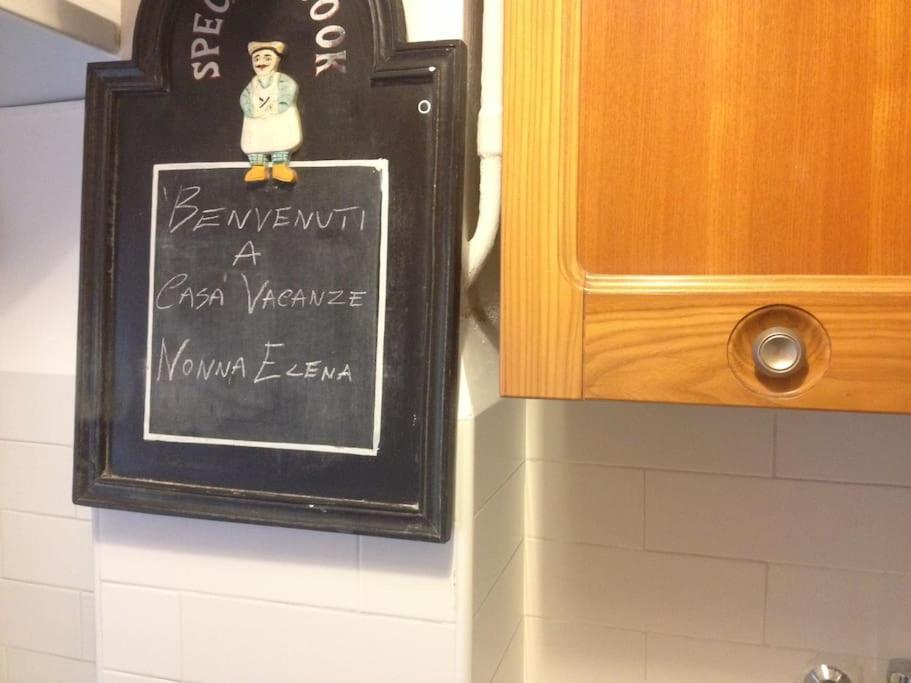 COOK
BENVENUTI
A
CASA VACANZE
NONNA ELENA